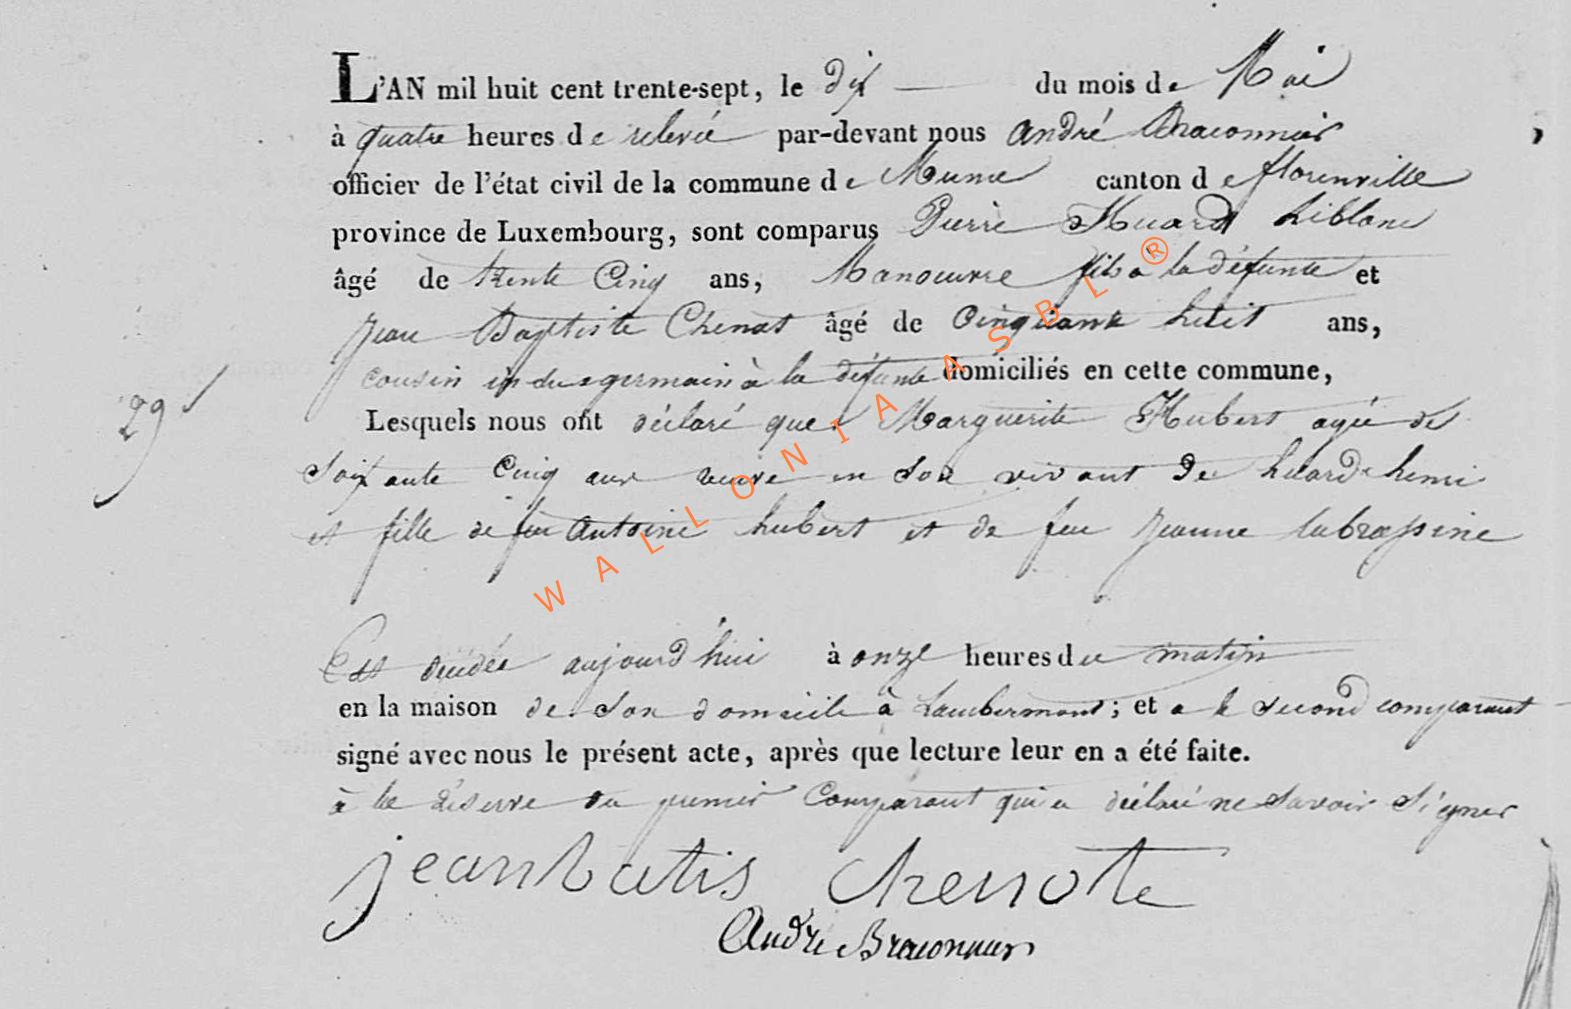 L'AN mil huit cent trente-sept, le dix du mois de Mai
à quatre heures de relevée par-devant nous André Braconnier
officier de l'état civil de la commune de Muno canton de florenville
province de Luxembourg, sont comparus Pierre Huard Leblanc
âgé de trente Cinq ans, Manoeuvre fils a la défunte et
Jean Baptiste Chenot âgé de Cinquante huit ans,
cousin germain à la défunte domiciliés en cette commune,
29
Lesquels nous ont déclaré que Marguerite Hubert agée de
Soixante Cinq ans veuve en Son vivant de huard henri
et fille de feu Antoine hubert et de feu Jeanne labrassine
Est décédée aujourd'hui à onze heures du matin
en la maison de Son domicile à Lambermont; et a le second comparant
signé avec nous le présent acte, après que lecture leur en a été faite.
à la réserve du premier Comparant qui a déclaré ne Savoir Signer
jeanbatis chenote
André Braconnier
WALLONIA ASBL ®